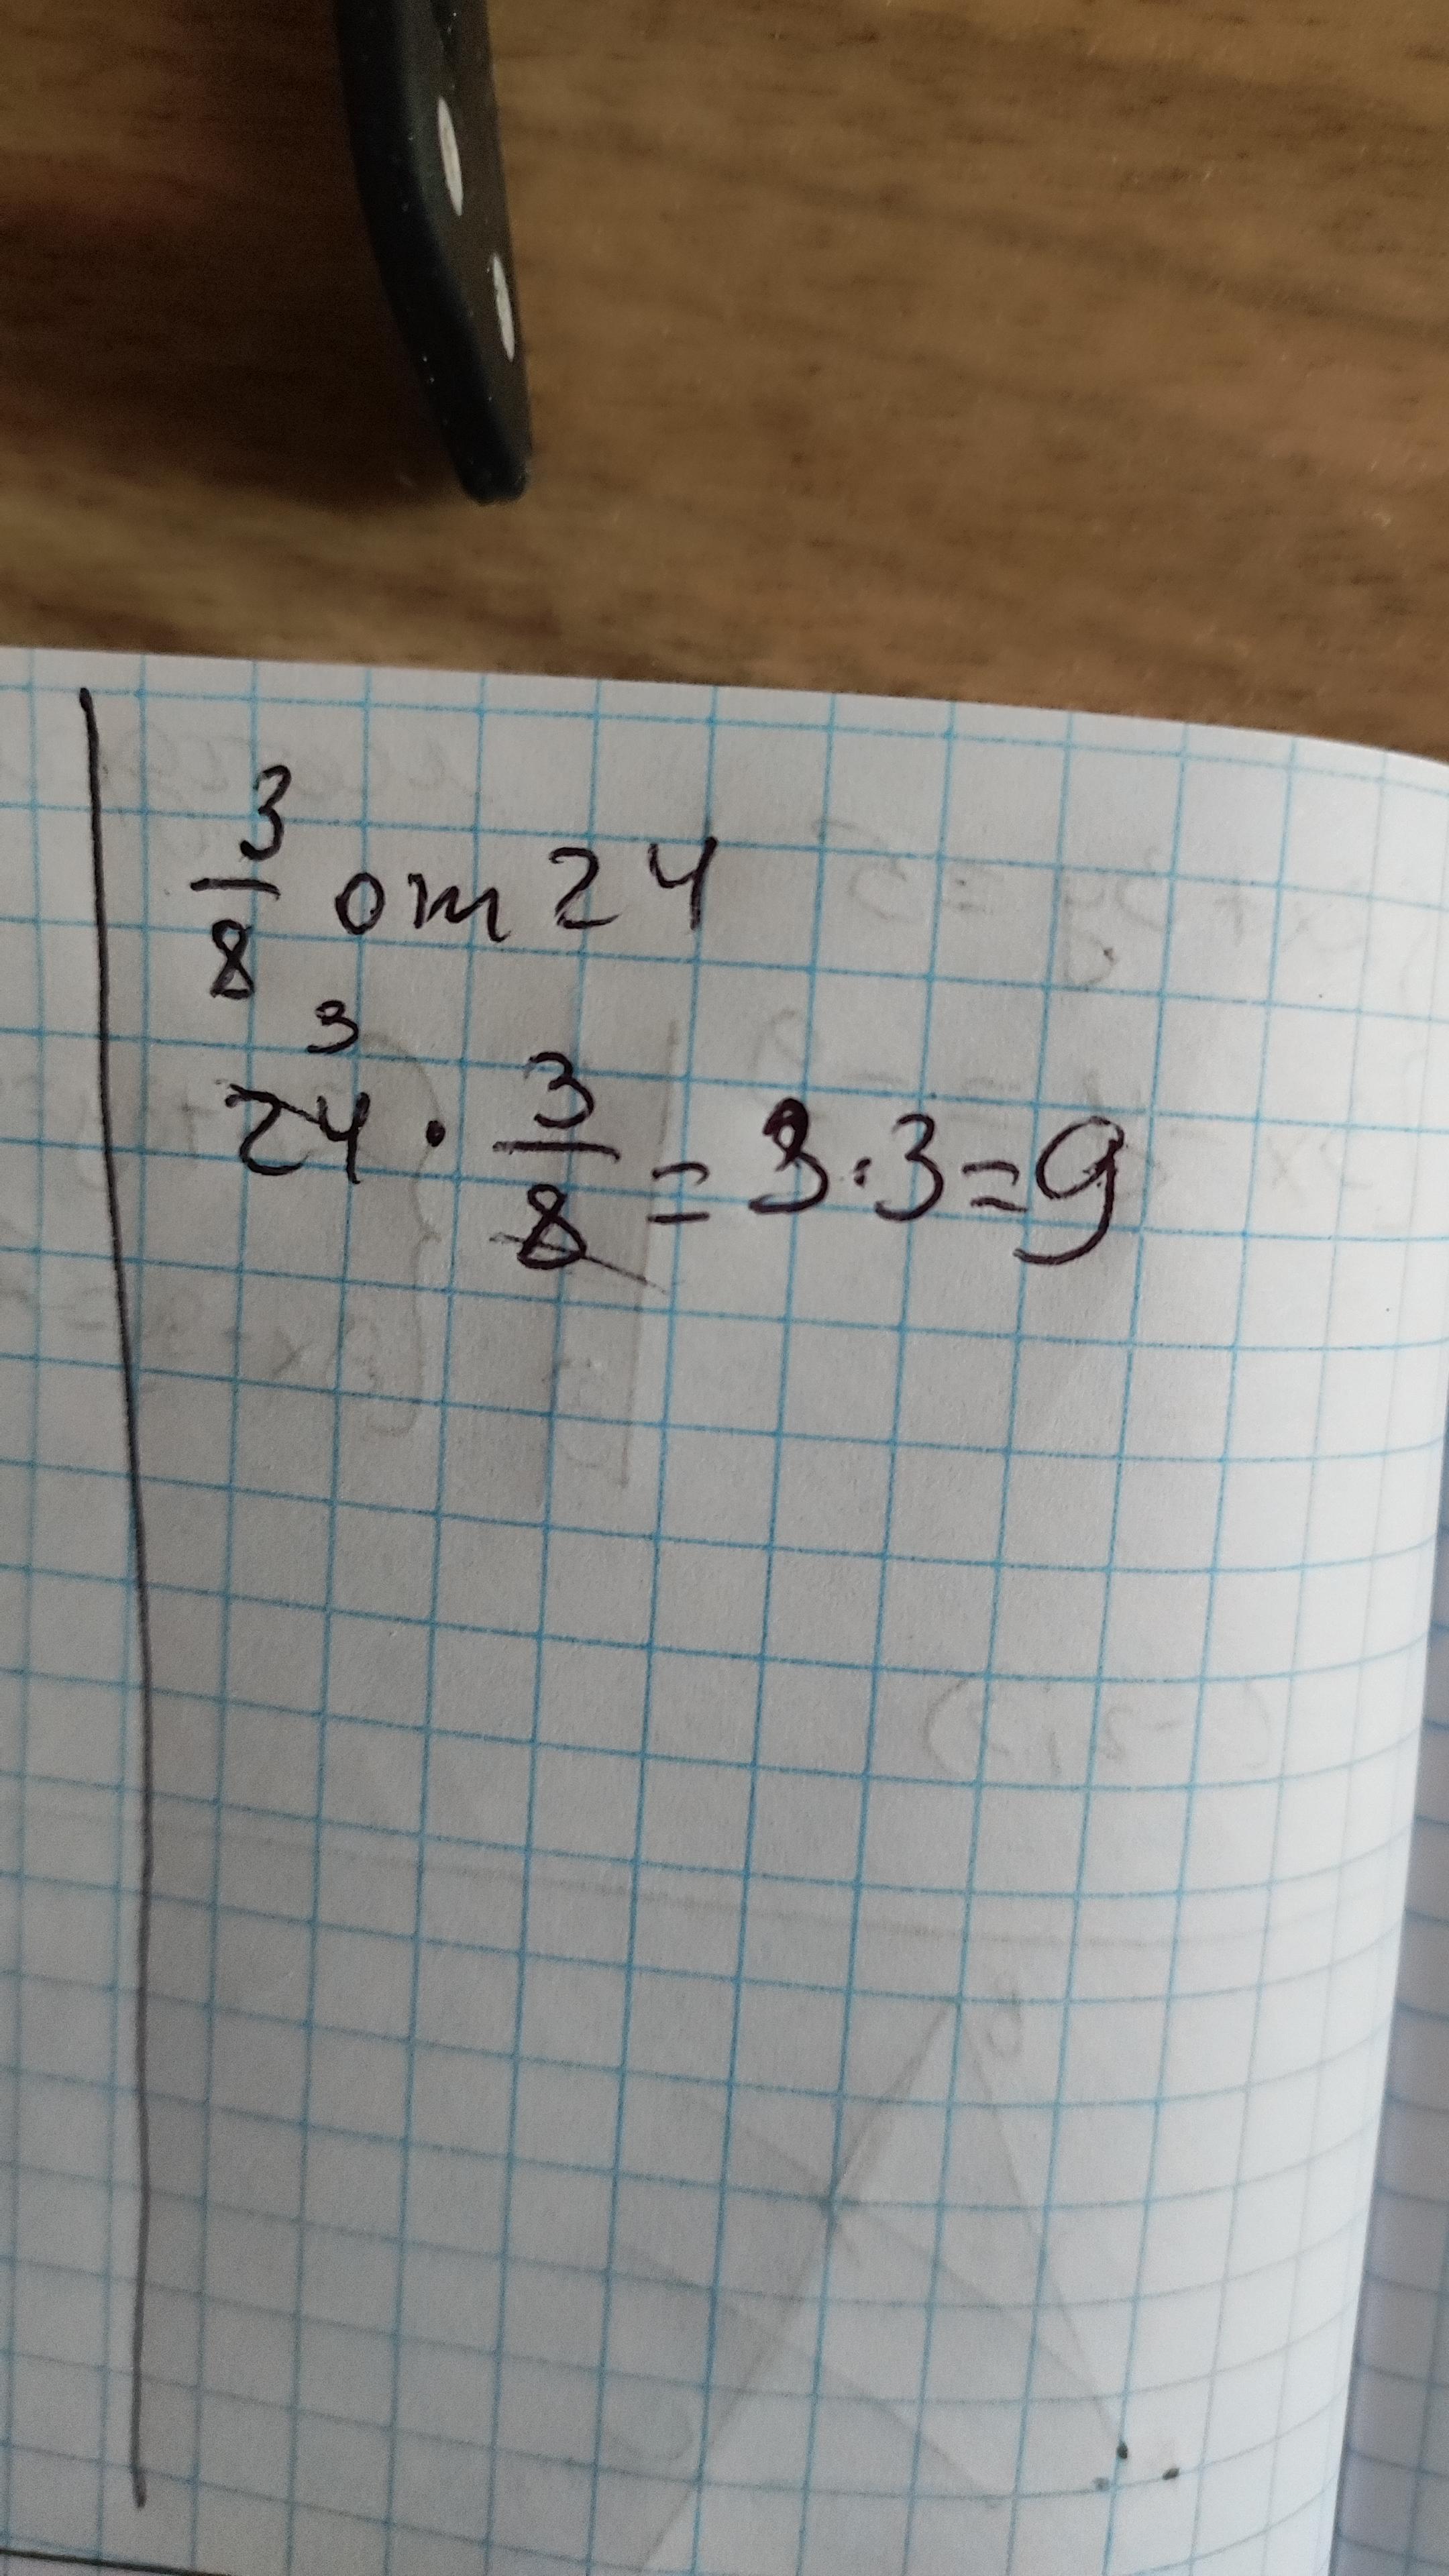 3/8 от 24
24 3 · 3/8 = 3 · 3 = 9